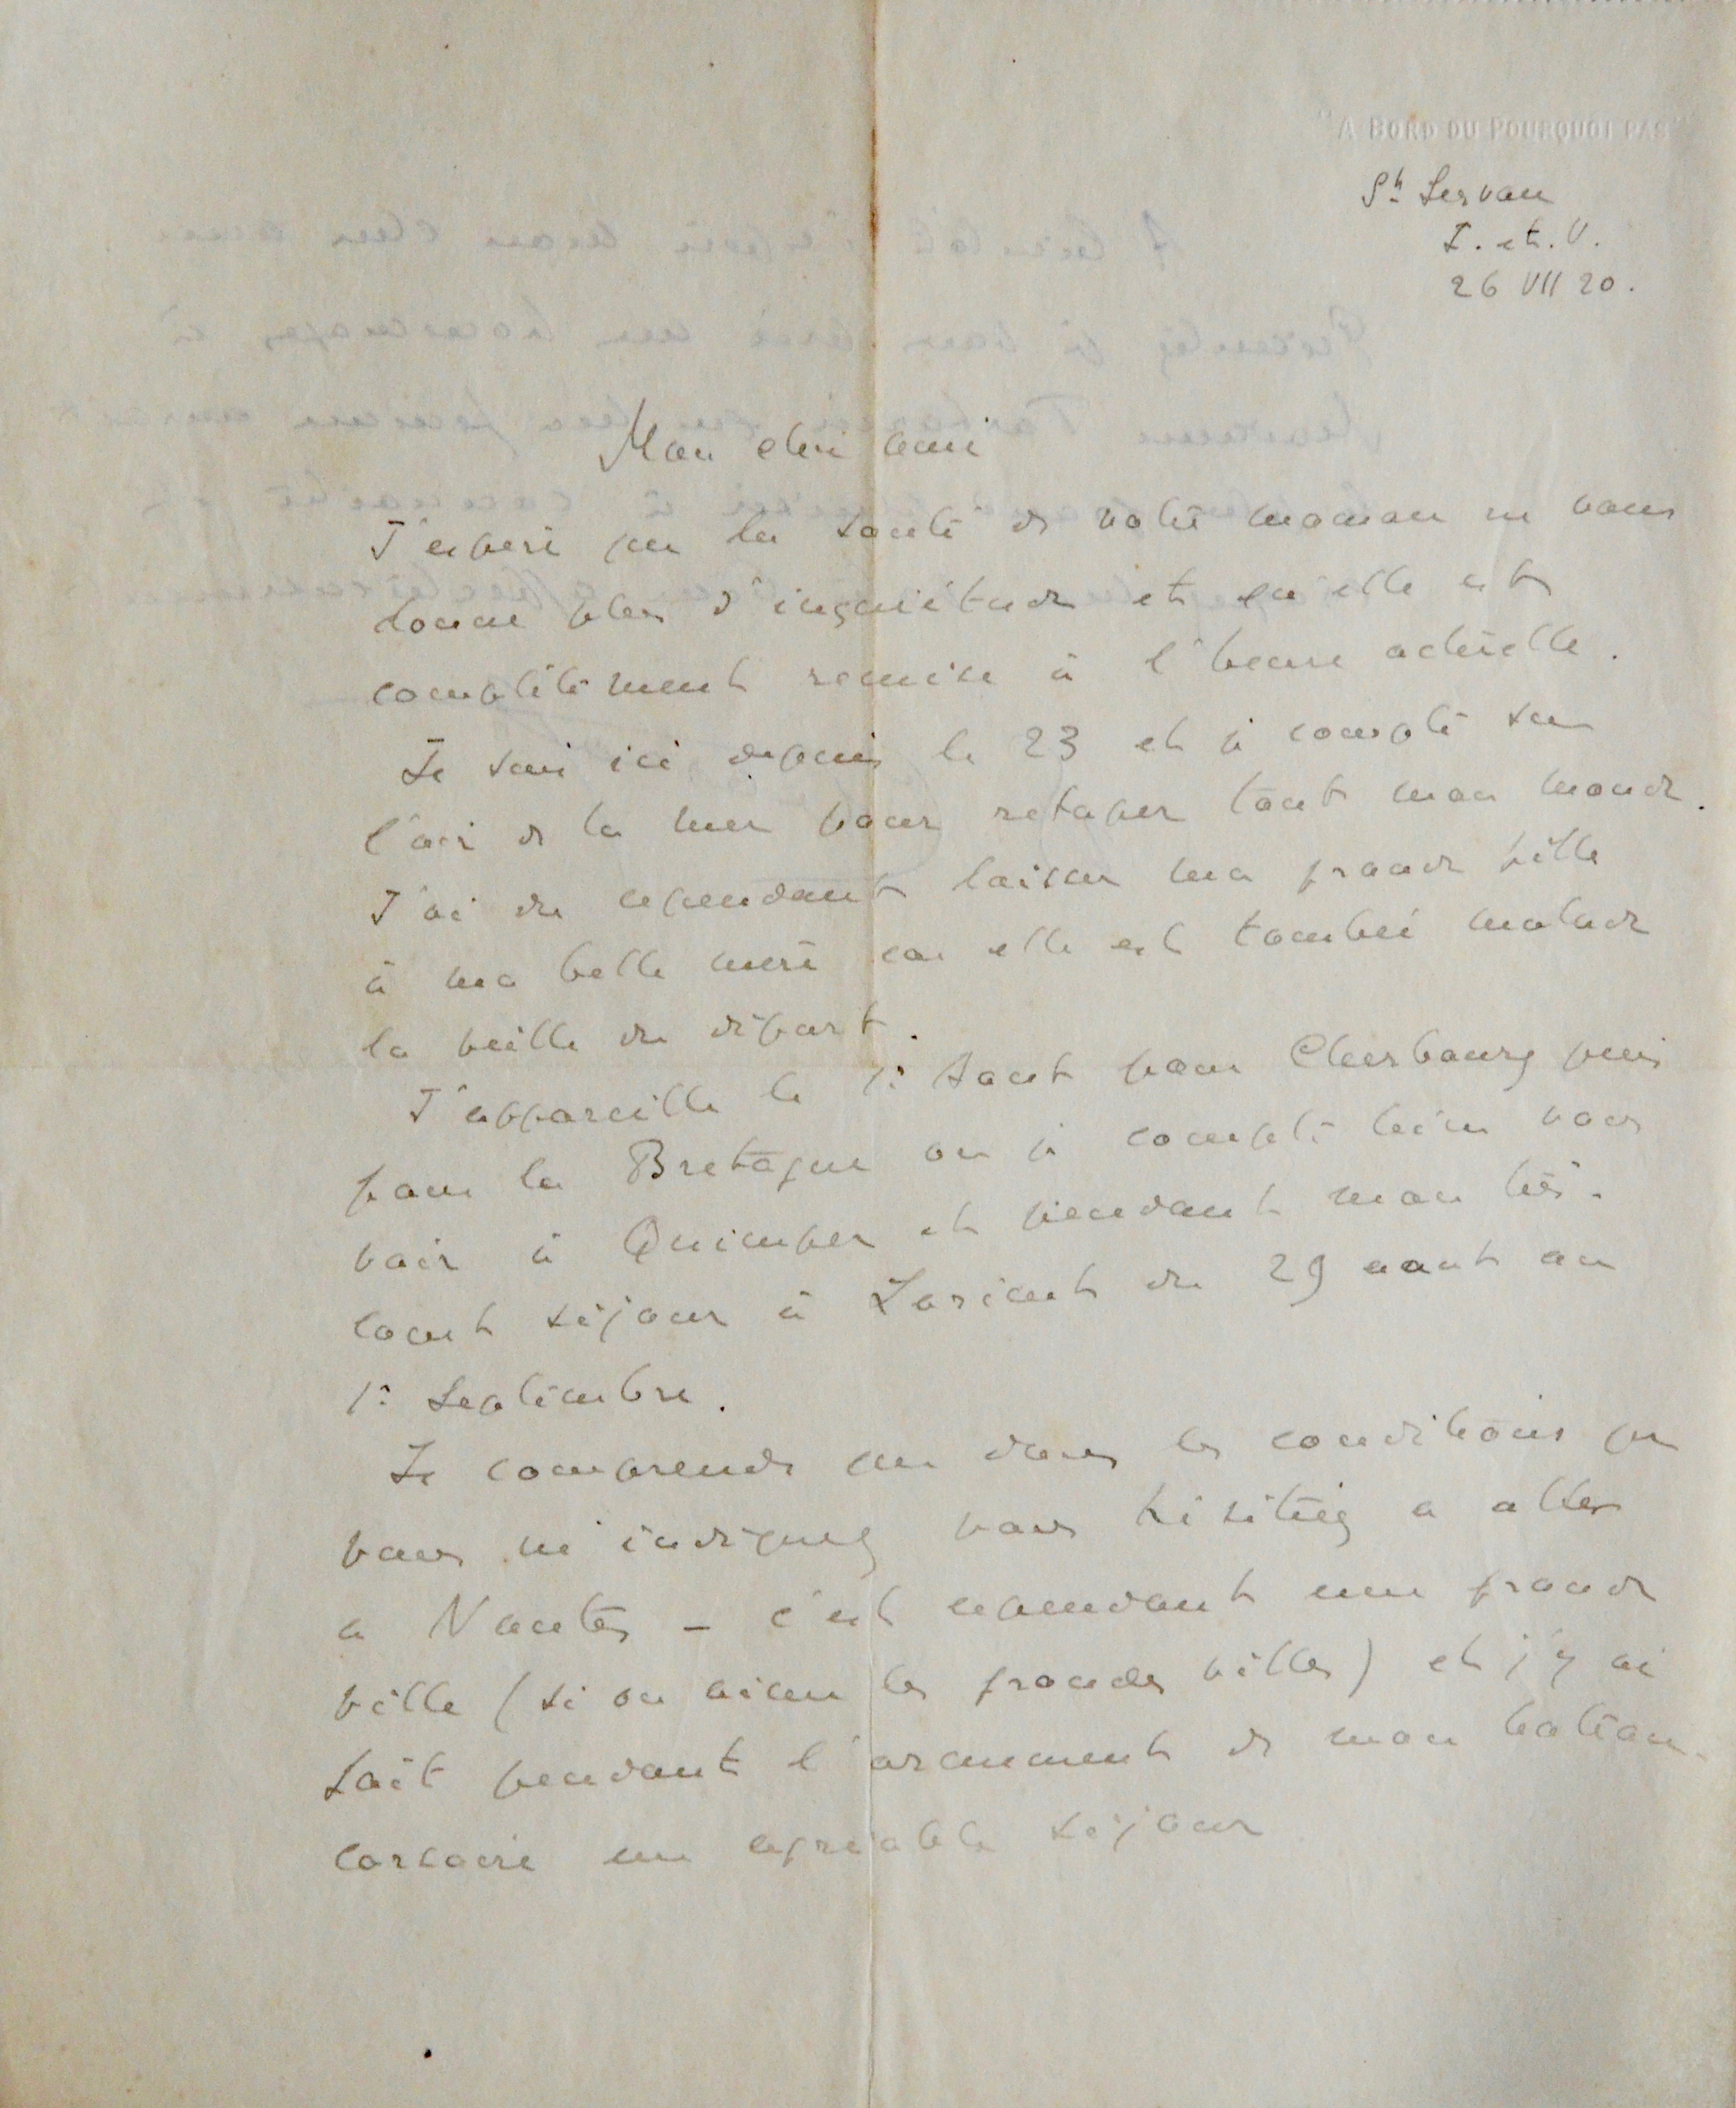 "A BORD DU POURQUOI PAS"
St Servan
I. et. V.
26 VII 20.
Mon cher ami
J'espere que la santé de votre maman ne vous
donne plus d'inquiétude et qu'elle est
complètement remise à l'heure actuelle.
Je suis ici depuis le 23 et je compte sur
l'air de la mer pour retaper tout mon monde.
J'ai du cependant laisser ma grande fille
à ma belle mère car elle est tombée malade
la veille du départ.
J'appareille le 1er Aout pour Cherbourg puis
pour la Bretagne ou je compte bien vous
voir à Quimper et pendant mon très-
court séjour à Lorient du 29 aout au
1er Septembre.
Je comprends que dans les conditions que
vous m'indiquez vous hésitiez a aller
a Nantes - c'est cependant une grande
ville (si on aime les grandes villes) et j'y ai
fait pendant l'armement de mon bateau-
corsaire un agréable séjour